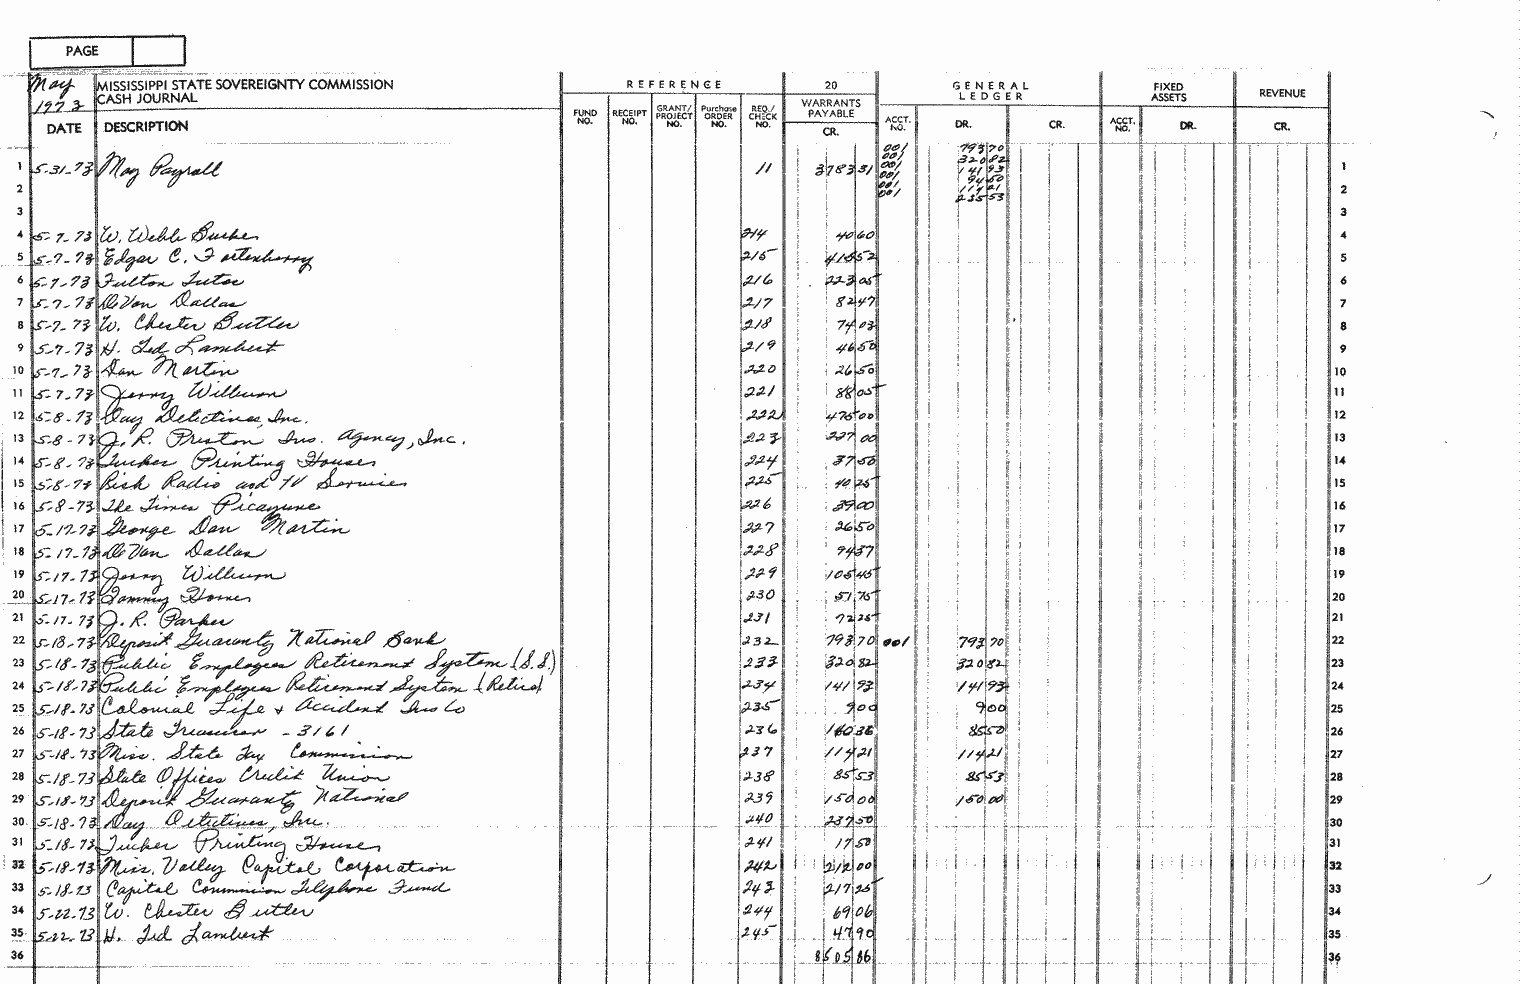 PAGE
May 1973 MISSISSIPPI STATE SOVEREIGNTY COMMISSION CASH JOURNAL REFERENCE 20 GENERAL LEDGER FIXED ASSETS REVENUE
DATE DESCRIPTION FUND NO. RECEIPT NO. GRANT/PROJECT NO. Purchase ORDER NO. REQ./CHECK NO. WARRANTS PAYABLE CR. ACCT. NO. DR. CR. ACCT. NO. DR. CR.
001 793 70
001 320 82
1 5-31-73 May Payroll 11 3783 31 001 141 93 1
001 94 50
2 001 114 21 2
001 235 53
3 3
4 5-7-73 W. Webb Burke 214 40 60 4
5 5-7-73 Edgar C. Fortenberry 215 415 52 5
6 5-7-73 Fulton Tutor 216 223 05 6
7 5-7-73 DeVan Dallas 217 82 47 7
8 5-7-73 W. Chester Butler 218 74 03 8
9 5-7-73 H. Ted Lambert 219 46 50 9
10 5-7-73 Dan Martin 220 26 50 10
11 5-7-73 Jerry Wilburn 221 88 05 11
12 5-8-73 Day Detectives, Inc. 222 475 00 12
13 5-8-73 J. R. Preston Ins. Agency, Inc. 223 227 00 13
14 5-8-73 Tucker Printing House 224 37 50 14
15 5-8-73 Rish Radio and TV Service 225 40 25 15
16 5-8-73 The Times Picayune 226 39 00 16
17 5-17-73 George Dan Martin 227 26 50 17
18 5-17-73 DeVan Dallas 228 94 37 18
19 5-17-73 Jerry Wilburn 229 105 45 19
20 5-17-73 Tommy Horne 230 51 75 20
21 5-17-73 J. R. Parker 231 72 25 21
22 5-18-73 Deposit Guaranty National Bank 232 793 70 001 793 70 22
23 5-18-73 Public Employees Retirement System (S.S.) 233 320 82 320 82 23
24 5-18-73 Public Employees Retirement System (Retire) 234 141 93 141 93 24
25 5-18-73 Colonial Life & Accident Ins Co 235 9 00 9 00 25
26 5-18-73 State Treasurer - 3161 236 85 50 26
27 5-18-73 Miss. State Tax Commission 237 114 21 114 21 27
28 5-18-73 State Offices Credit Union 238 85 53 85 53 28
29 5-18-73 Deposit Guaranty National 239 150 00 150 00 29
30 5-18-73 Day Detectives, Inc. 240 237 50 30
31 5-18-73 Tucker Printing House 241 17 50 31
32 5-18-73 Miss. Valley Capitol Corporation 242 212 00 32
33 5-18-73 Capitol Commission Telephone Fund 243 217 25 33
34 5-22-73 W. Chester Butler 244 69 06 34
35 5-22-73 H. Ted Lambert 245 47 90 35
36 8505 86 36